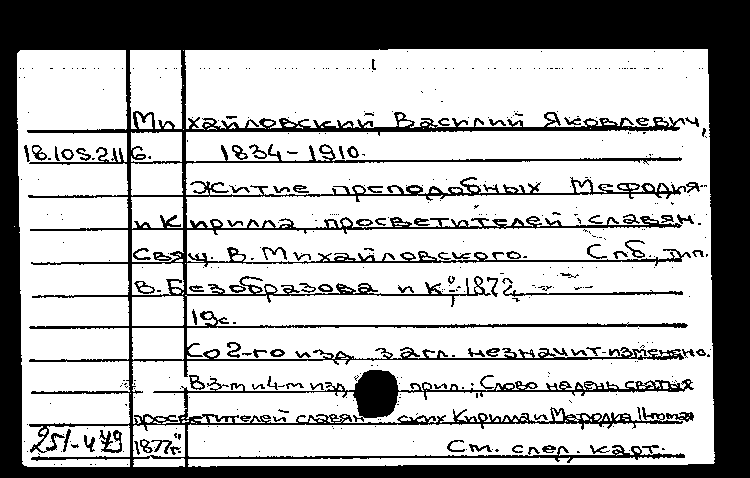 Михайловский, Василий Яковлевич,
18.105.2.116. 1834-1910.
Житие преподобных Мефодия
и Кирилла, просветителей славян.
Свящ. В. Михайловского. Спб., тип.
В. Безобразова и К°, 1872.
19с.
Со 2-го изд. загл. незначит. изменено.
В 3-м и 4-м изд. прил.: "Слово на день святых
просветителей славянских Кирилла и Мефодия, 11-го мая
251-479 1877г." См. след. карт.